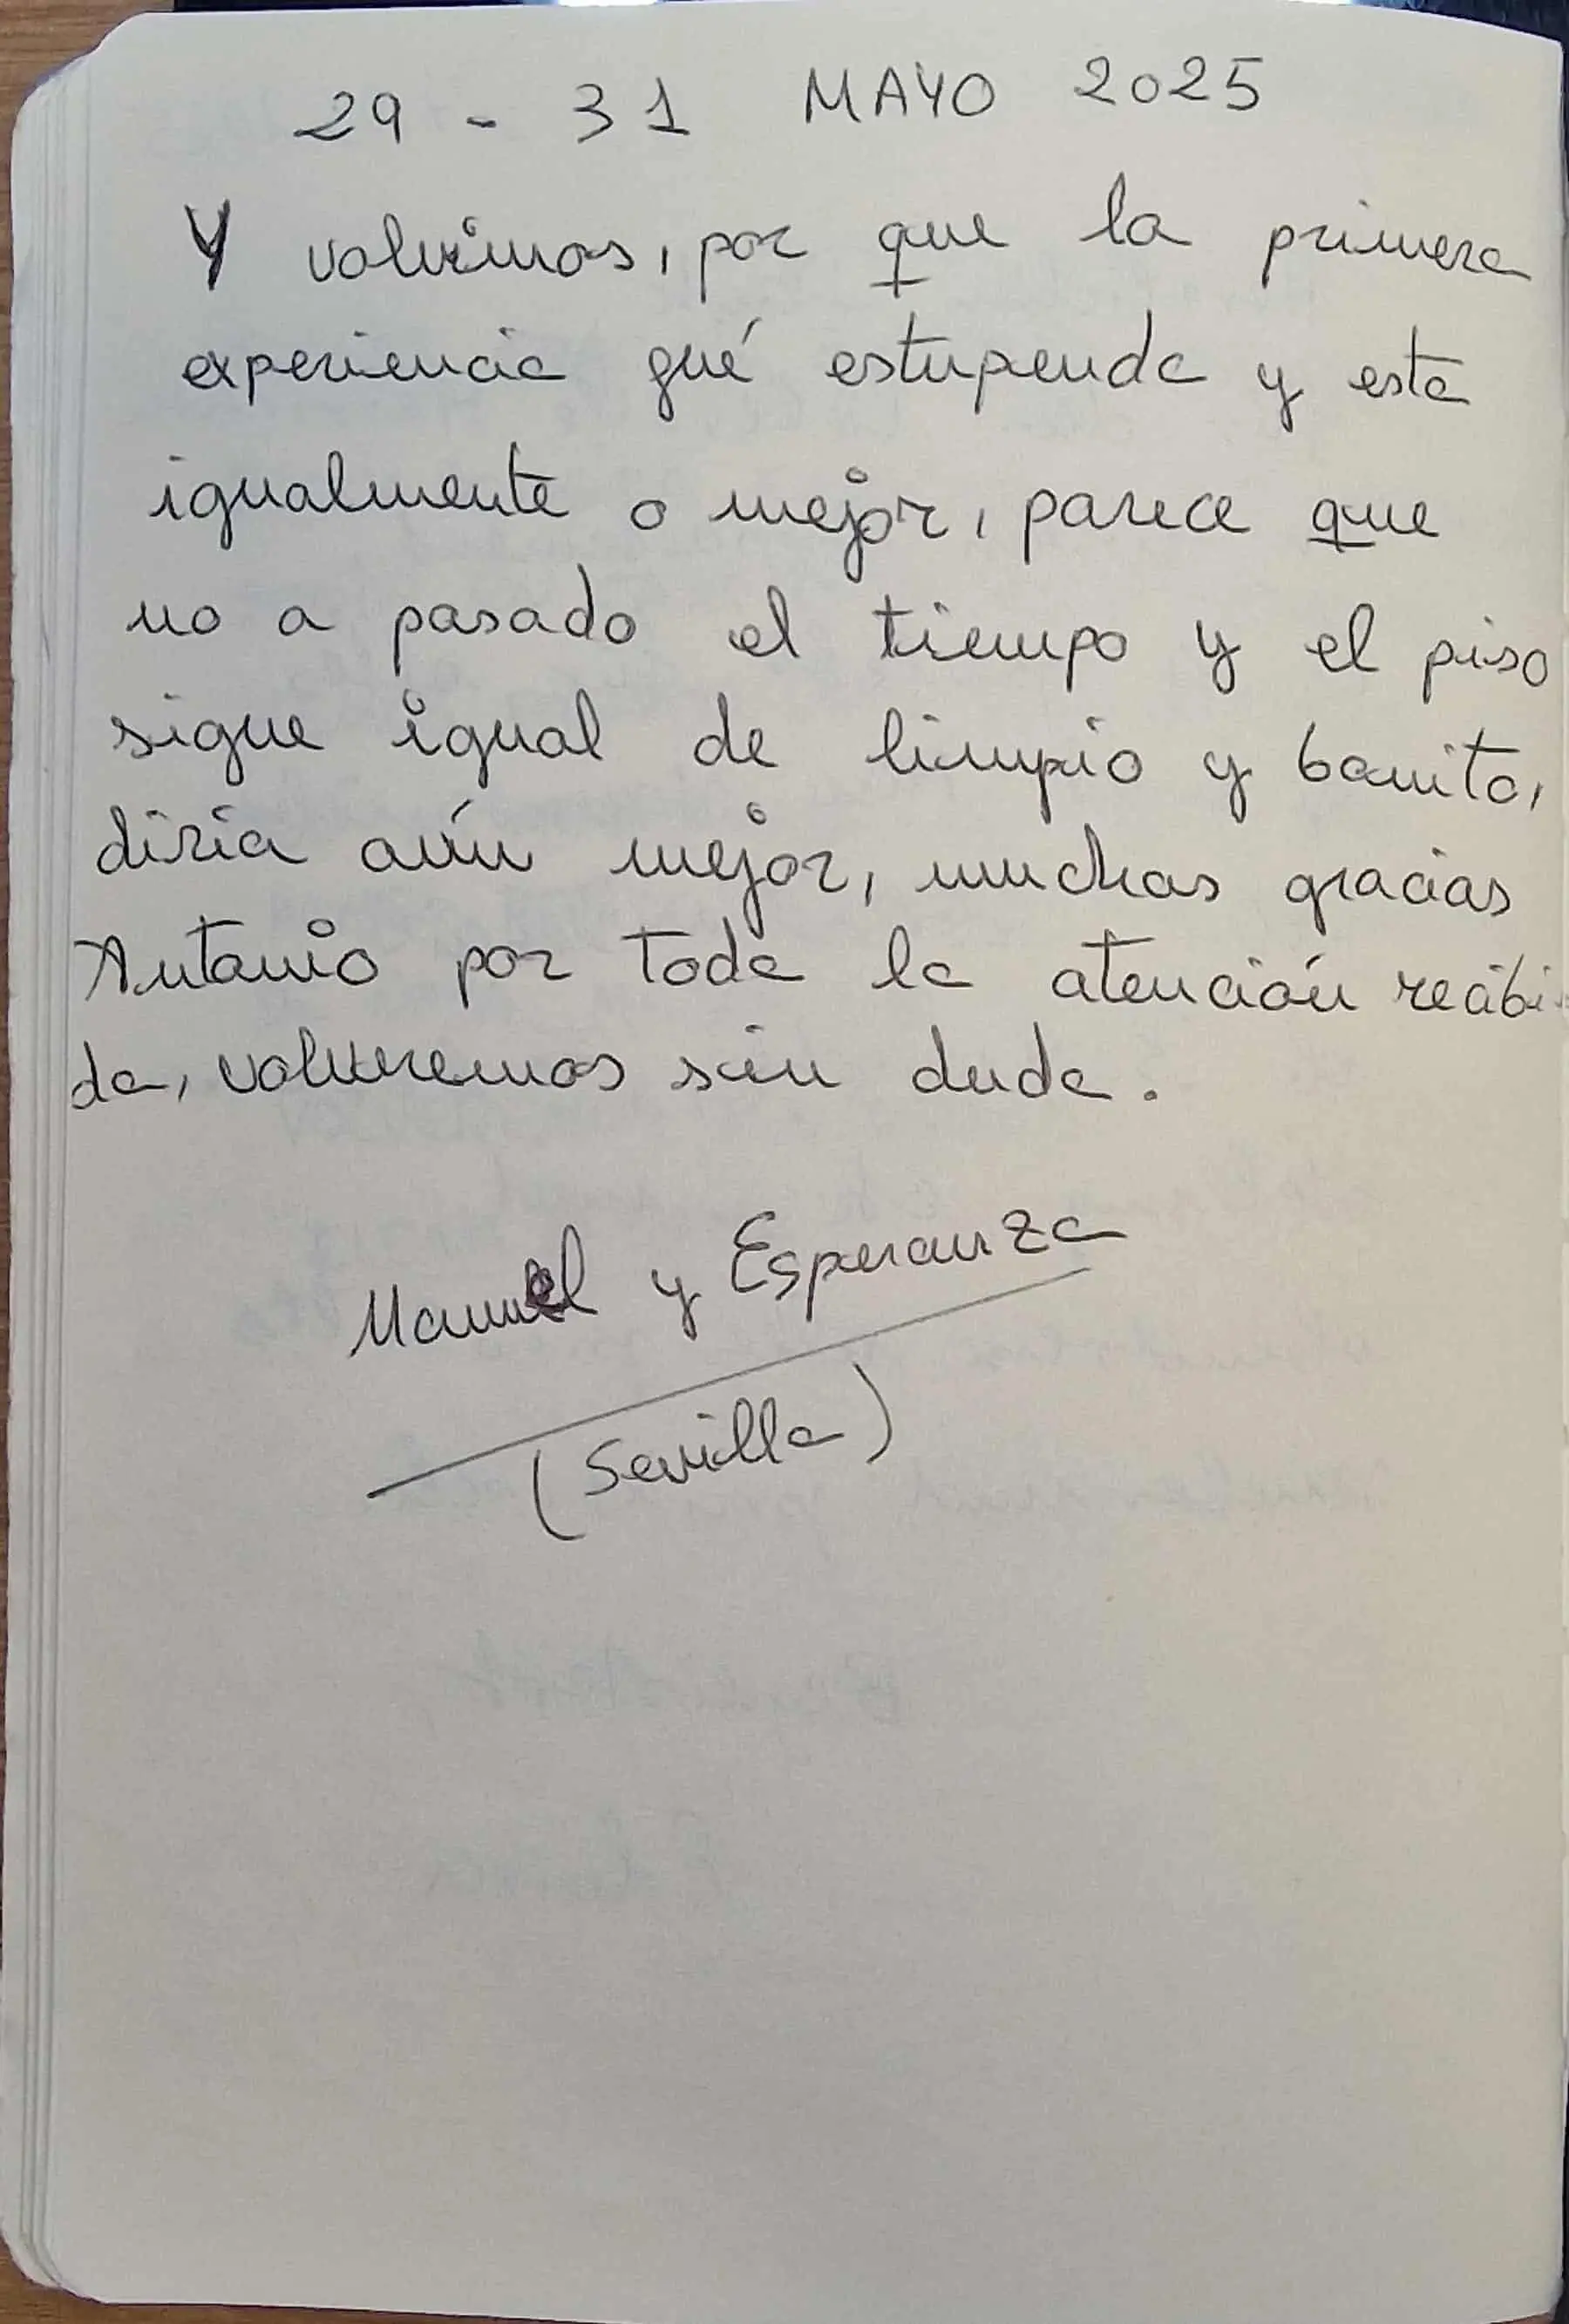 29 - 31 MAYO 2025
Y volvimos, por que la primera
experiencia fué estupenda y esta
igualmente o mejor, parece que
no a pasado el tiempo y el piso
sigue igual de limpio y bonito,
diria aún mejor, muchas gracias
Antonio por toda la atención recibi-
da, volveremos sin duda.
Manuel y Esperanza
(Sevilla)